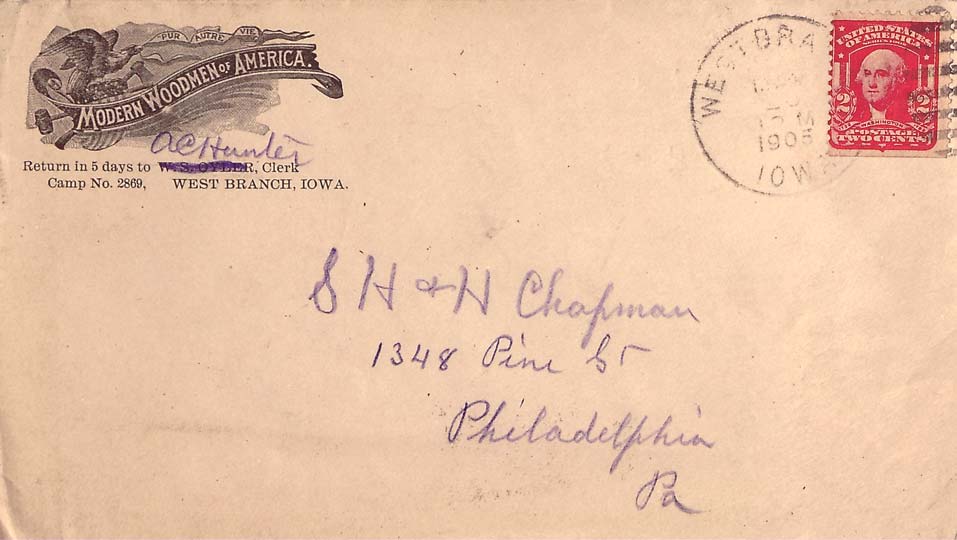 PUR AUTRE VIE
MODERN WOODMEN OF AMERICA.
A C Hunter
Return in 5 days to W. S. OYLER, Clerk
Camp No. 2869, WEST BRANCH, IOWA.
WEST BRA
M
1905
IOWA
UNITED STATES
OF AMERICA
2 2
WASHINGTON
POSTAGE
TWO CENTS
S H & H Chapman
1348 Pine St
Philadelphia
Pa